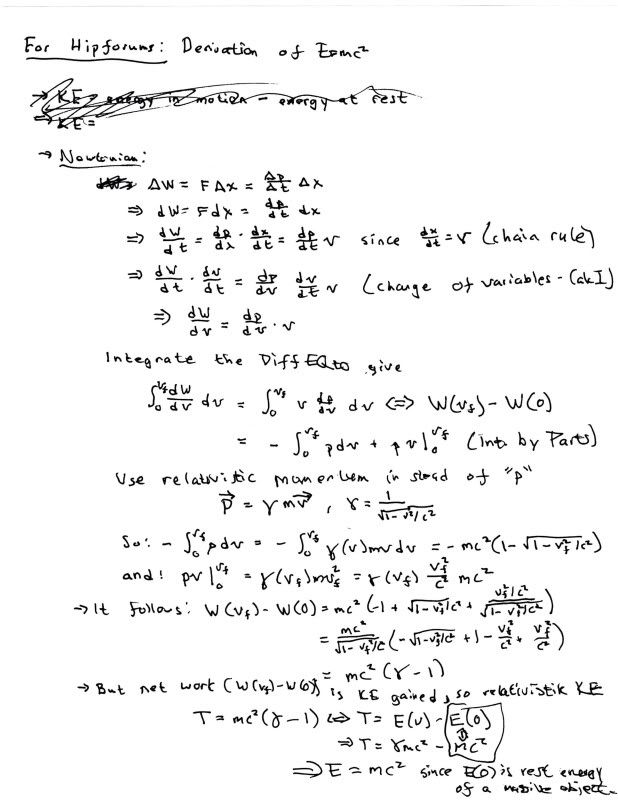 For Hipforums: Derivation of E=mc²
→ KE = energy in motion - energy at rest
⇒ KE =
→ Newtonian:
ΔW = FΔx = Δp/Δt Δx
⇒ dW = Fdx = dp/dt dx
⇒ dW/dt = dp/dx · dx/dt = dp/dt v since dx/dt = v (chain rule)
⇒ dW/dt · dv/dt = dp/dv dv/dt v (change of variables -
⇒ dW/dv = dp/dv · v
Integrate the Diff EQ to give
∫₀^vf dW/dv dv = ∫₀^vf v dp/dv dv ⇔ W(vf) - W(0)
= - ∫₀^vf pdv + pv|₀^vf (Int. by Parts)
Use relativistic momentum in stead of "p"
p⃗ = γmv⃗, γ = 1/√(1-v²/c²)
So: - ∫₀^vf pdv = - ∫₀^vf γ(v)mvdv = -mc²(1-√(1-vf²/c²))
and: pv|₀^vf = γ(vf)mvf² = γ(vf) vf²/c² mc²
→ It follows: W(vf) - W(0) = mc²(-1 + √(1-vf²/c²) + (vf²/c²)/√(1-vf²/c²))
= mc²/√(1-vf²/c²) (-√(1-vf²/c²) + 1 - vf²/c² + vf²/c²)
= mc²(γ-1)
→ But net work (W(vf)-W(0)) is KE gained, so relativistik KE
T = mc²(γ-1) ⇔ T = E(v) - E(0)
⇒ T = γmc² - mc²
⇒ E = mc² since E(0) is rest energy
of a massive object.